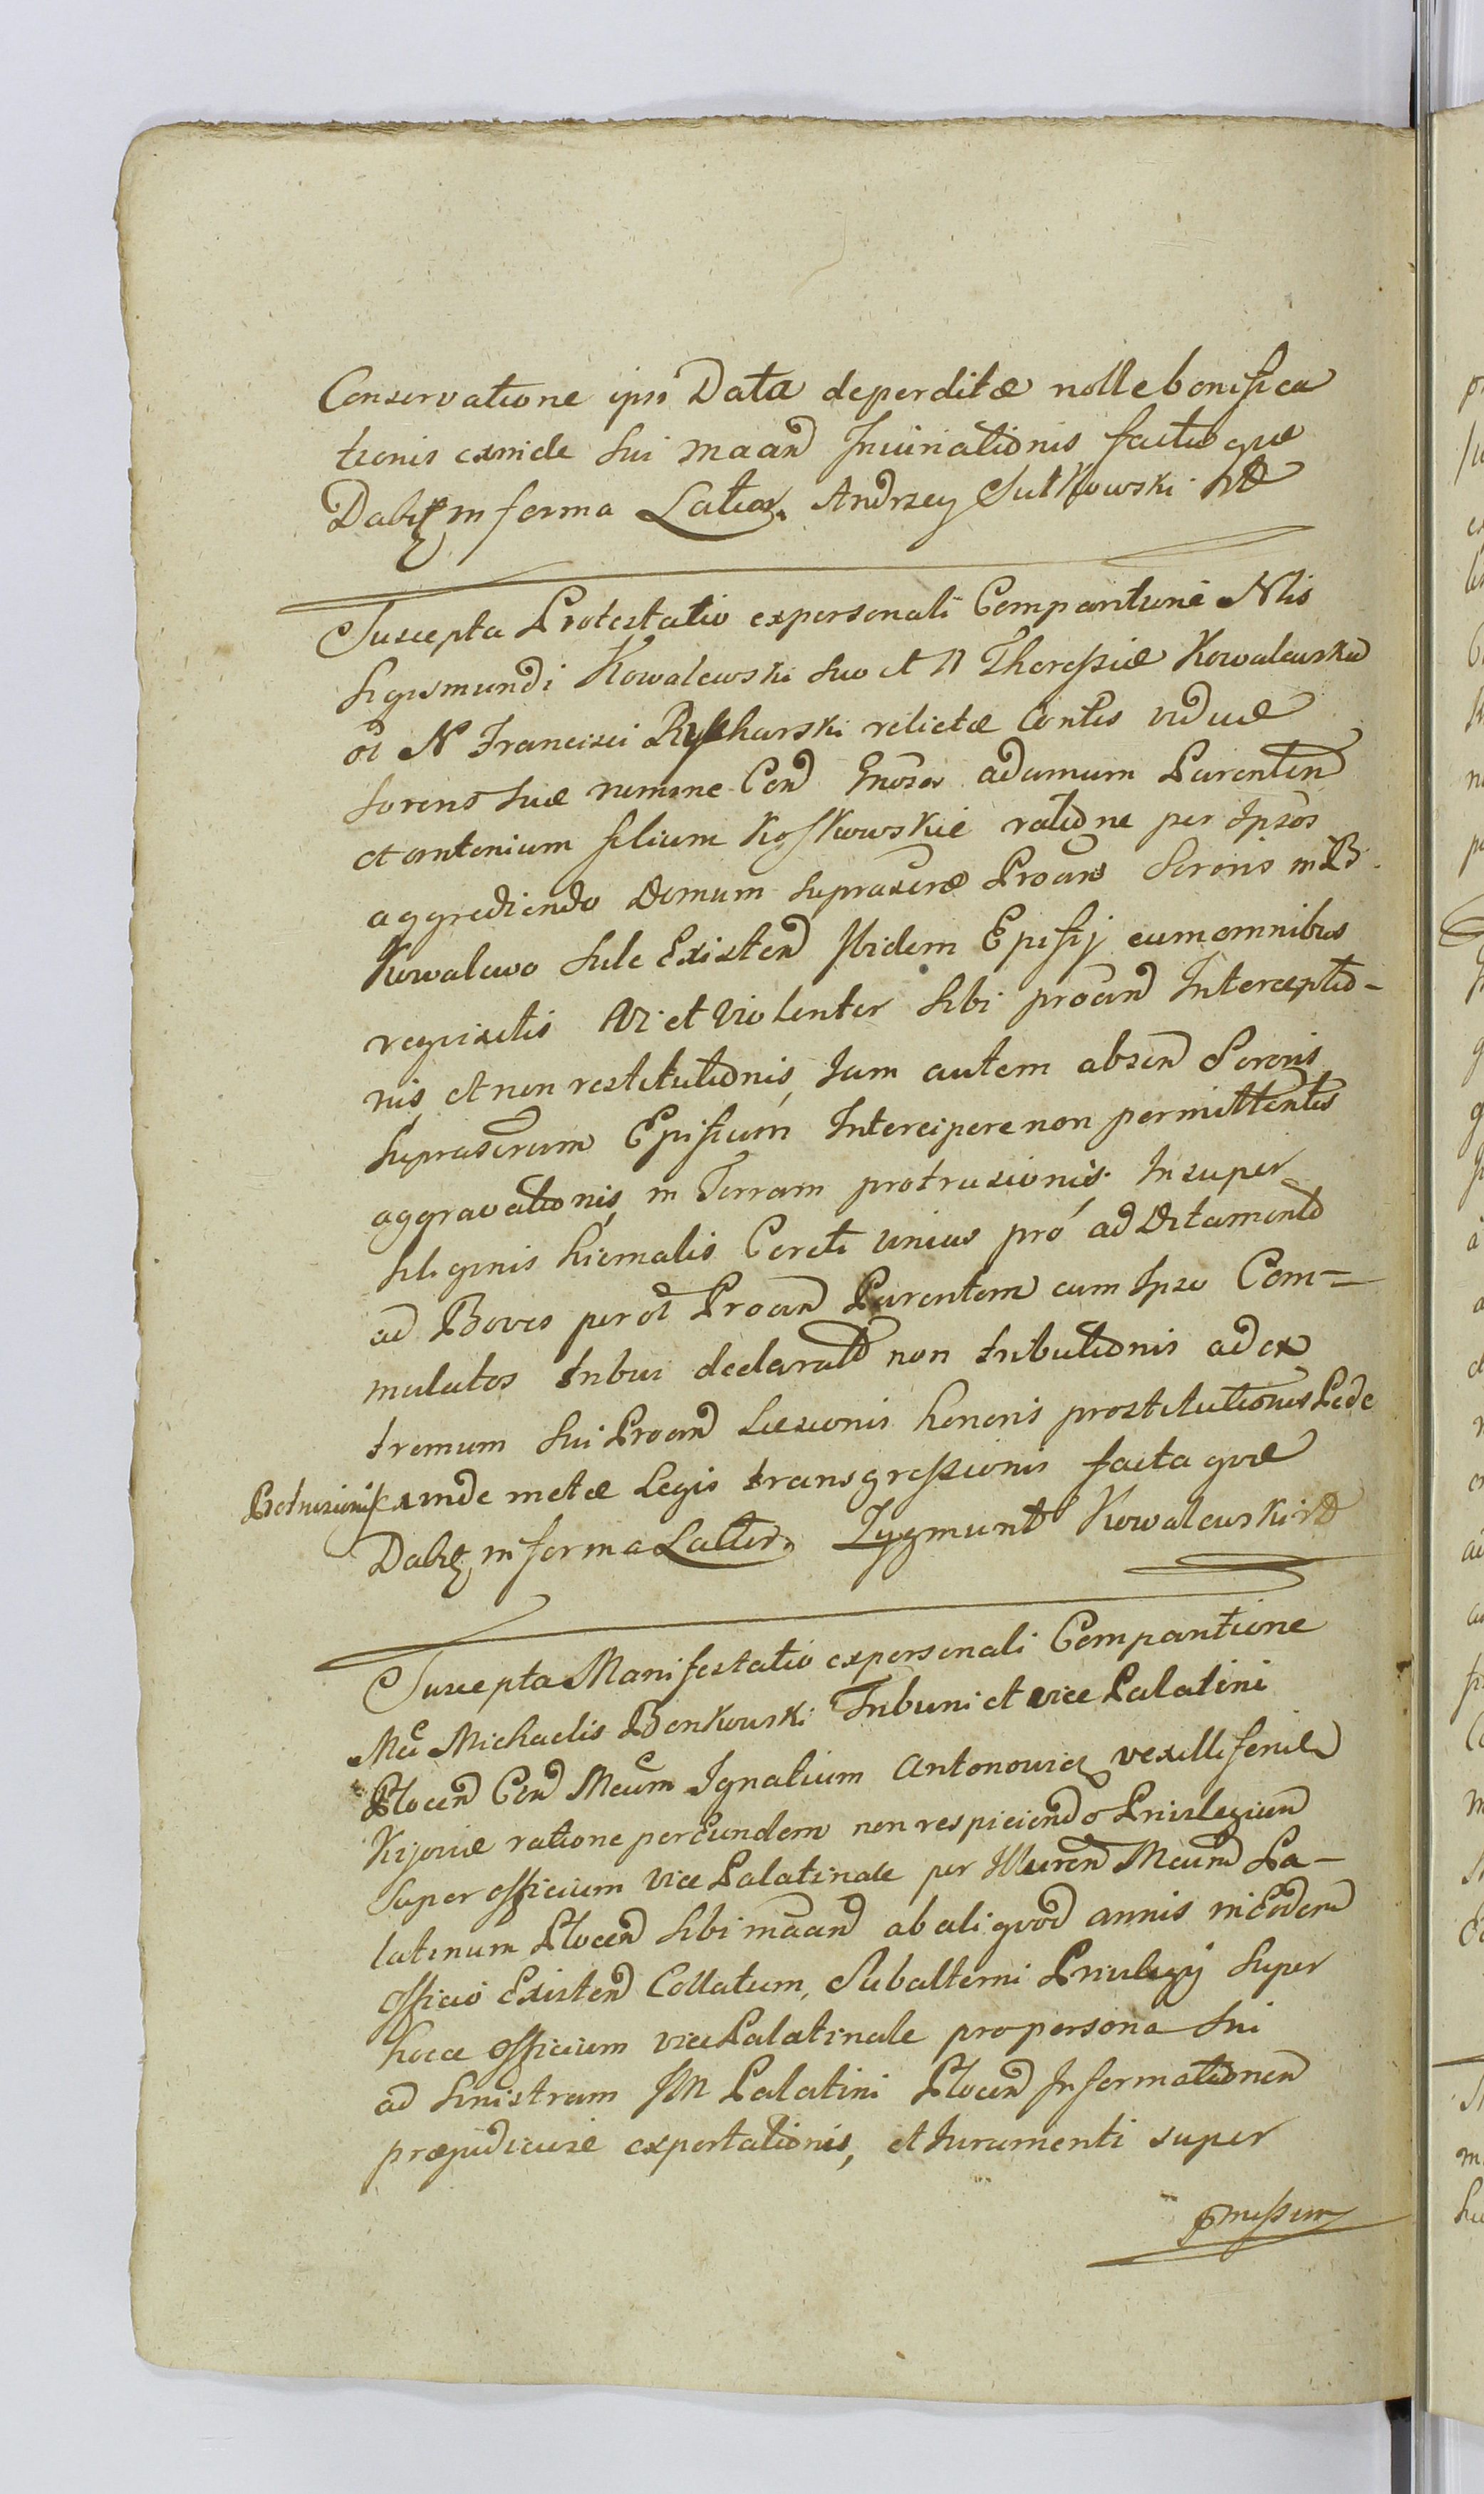 Conservatione ipsi Data deperditæ nolle bonifica
tionis exinde sui maand Iniuriationis facta quæ
Dabit in forma Latior. Andrzey Sutkowski
Suscepta Protestatio ex personali Comparitione Nlis
Sigismundi Kowalewski suo et N Theressiæ Kowalewska
ol N Francisci Rykharski relictæ Contis viduæ
Sororis suæ nomine Con Gnosos adamum Parentem
et antonium filium Koskowskie ratione per Ipsos
aggrediendo Domum suprascræ Proans Sororis in B
Kowalewo Existen Ibidem Episij cum omnibus
requisitis Vi et violenter sibi proan Interceptio-
nis, et non restitutionis, Iam autem absen Sororis
suprascrum Episium Intercipere non permittentis
aggravationis, in Terram protrusionis. Insuper
siliginis hiemalis Coreti unius pro additamento
ad Boves per ol Proan Parentem cum Ipso Com=
mulatos tribui declarato non tributionis ad ex
tremum sui Proan Læsionis honoris prostitutionis Pede
Protrusionis exinde metæ Legis transgressionis facta quæ
Dabit in forma Latior. Zygmunt Kowalewski
Suscepta Manifestatio ex personali Comparitione
Mci Michaelis Bonkowski Tribuni et vice Palatini
Plocen Con Mcum Ignatium Antonowicz vexilliferum
Kijoviæ ratione per Eundem non respiciendo Privilegium
Super officium vice Palatinale per Illuren Mcum Pa-
latinum Plocen sibi maan ab aliquod annis in Eodem
officio Existen Collatum, Subalterni Privilegij super
hocce officium vice Palatinale pro persona sui
ad sinistram IM Palatini Plocen Informationem
præjudiciose exportationis, et Iuramenti super